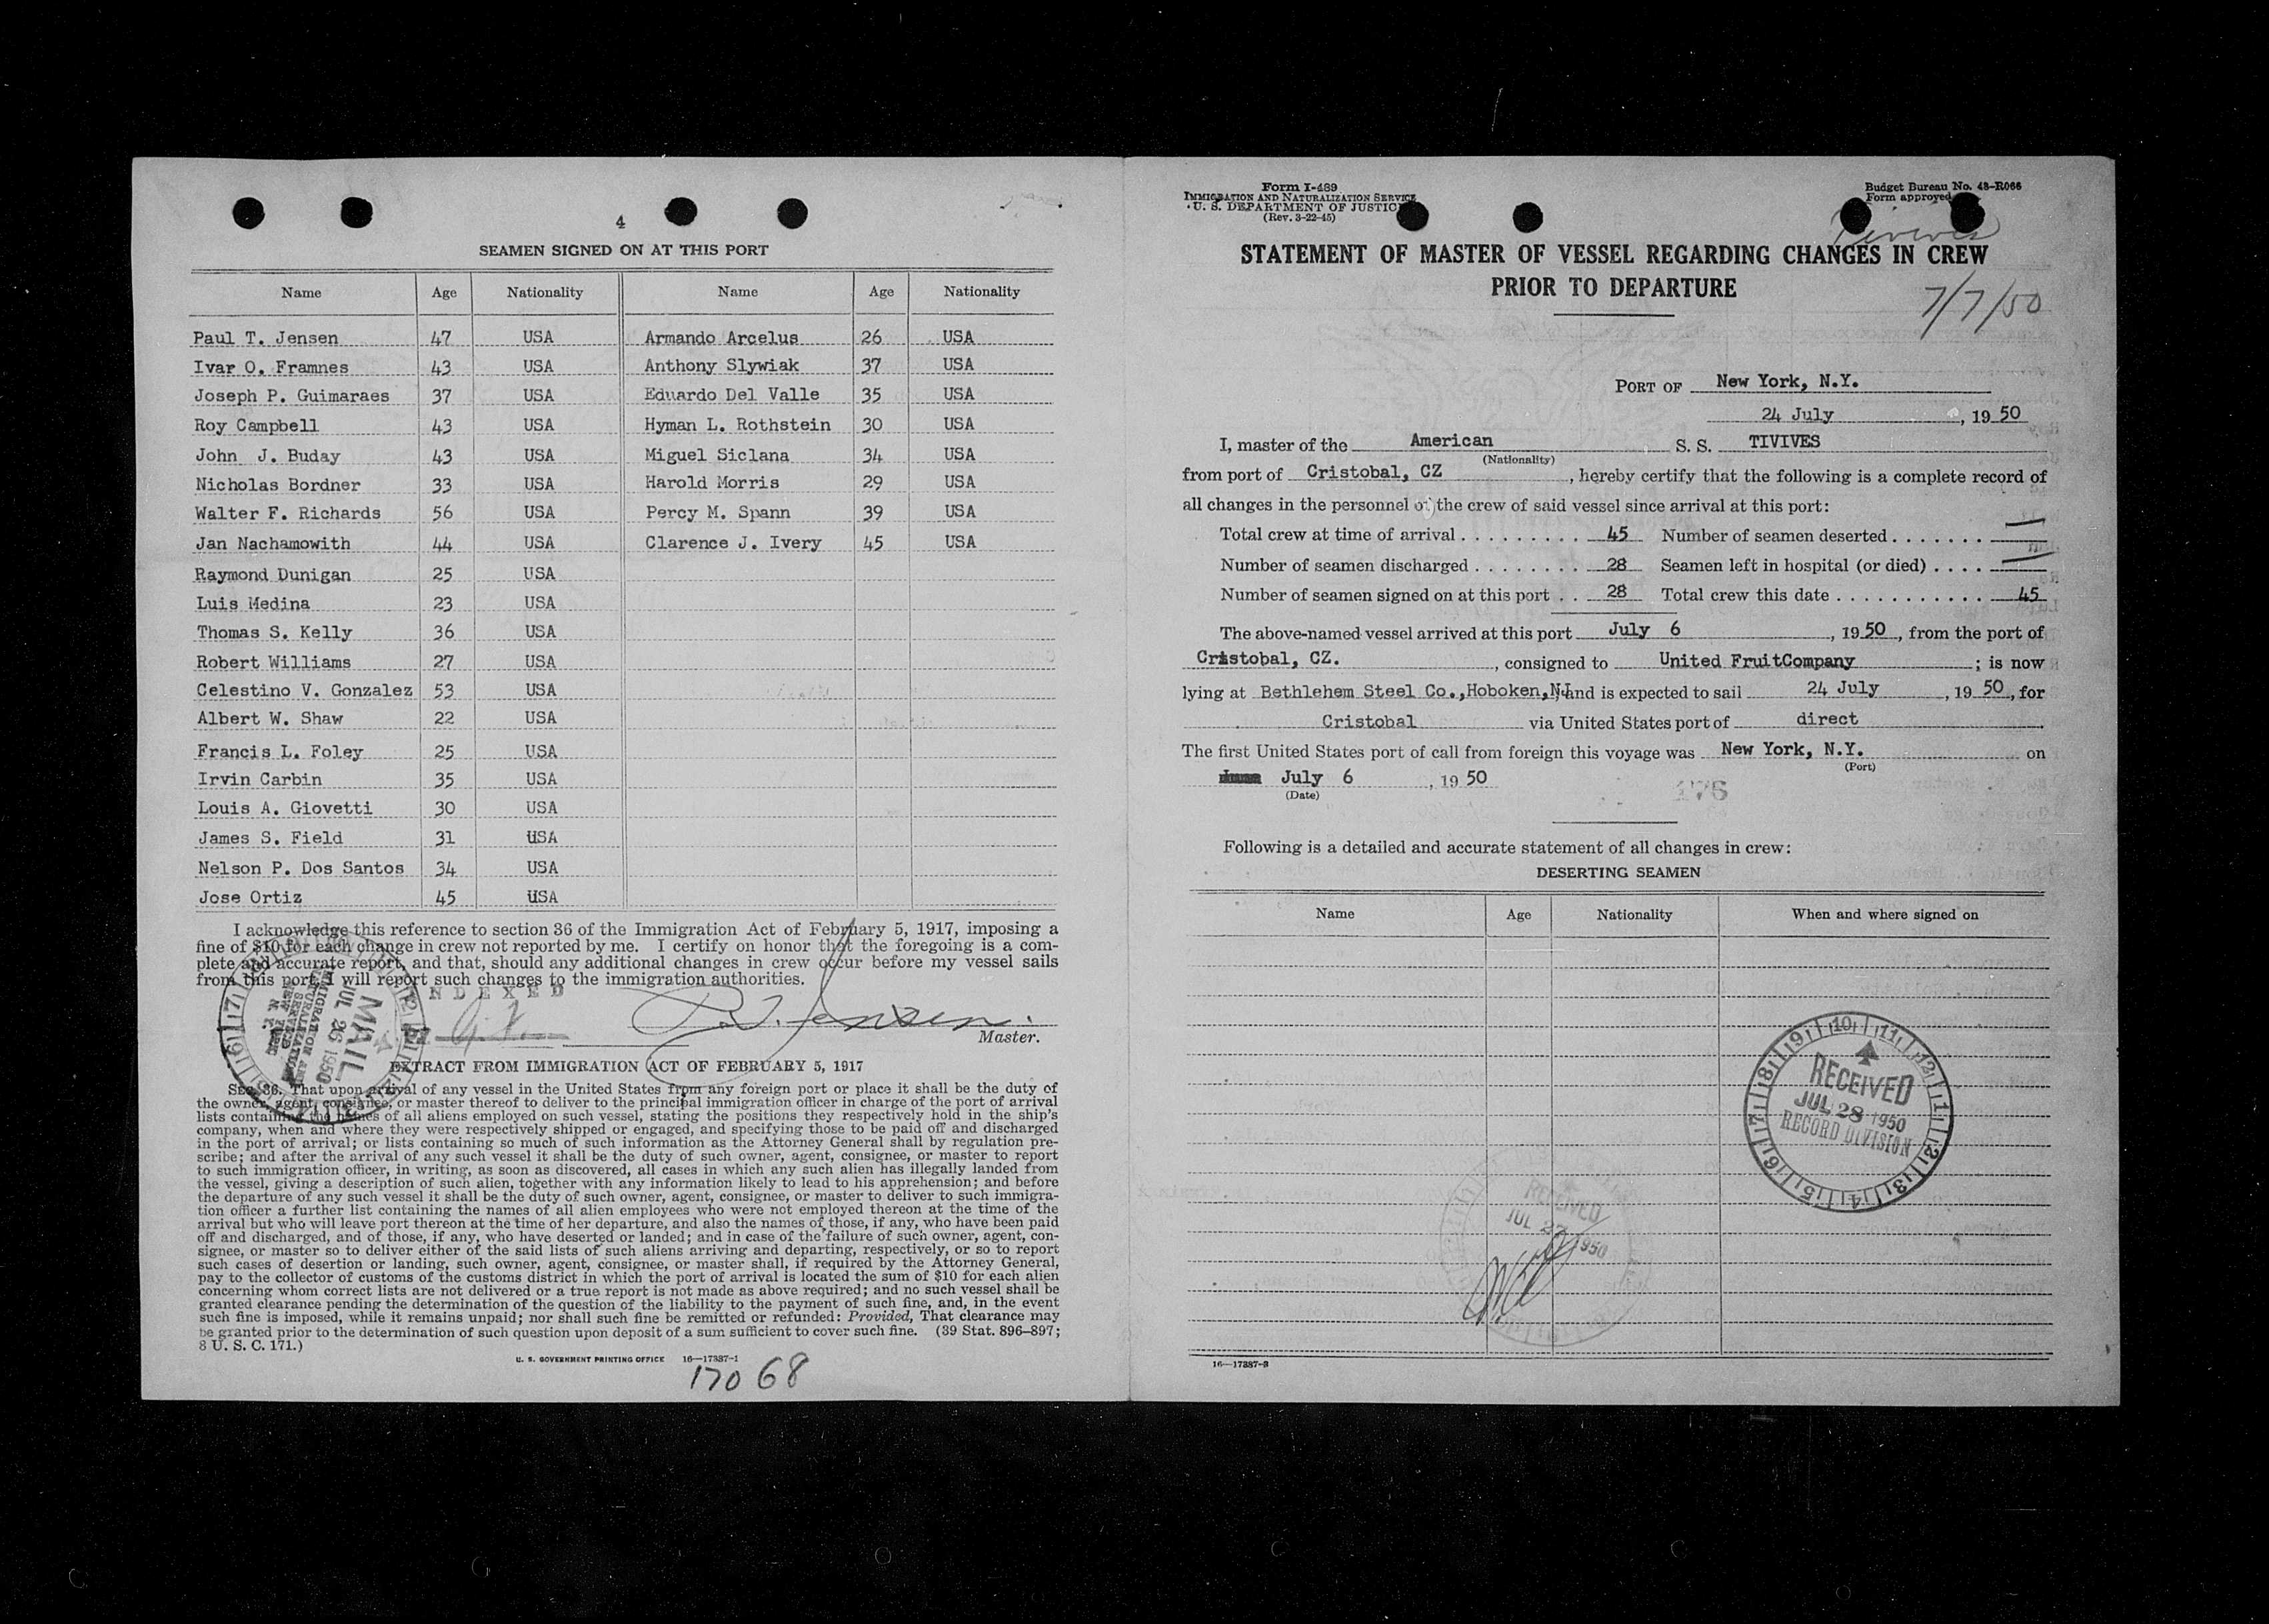 4
SEAMEN SIGNED ON AT THIS PORT
Name Age Nationality Name Age Nationality
Paul T. Jensen 47 USA Armando Arcelus 26 USA
Ivar O. Framnes 43 USA Anthony Slywiak 37 USA
Joseph P. Guimaraes 37 USA Eduardo Del Valle 35 USA
Roy Campbell 43 USA Hyman L. Rothstein 30 USA
John J. Buday 43 USA Miguel Siclana 34 USA
Nicholas Bordner 33 USA Harold Morris 29 USA
Walter F. Richards 56 USA Percy M. Spann 39 USA
Jan Nachamowith 44 USA Clarence J. Ivery 45 USA
Raymond Dunigan 25 USA
Luis Medina 23 USA
Thomas S. Kelly 36 USA
Robert Williams 27 USA
Celestino V. Gonzalez 53 USA
Albert W. Shaw 22 USA
Francis L. Foley 25 USA
Irvin Carbin 35 USA
Louis A. Giovetti 30 USA
James S. Field 31 USA
Nelson P. Dos Santos 34 USA
Jose Ortiz 45 USA
I acknowledge this reference to section 36 of the Immigration Act of February 5, 1917, imposing a
fine of $10 for each change in crew not reported by me. I certify on honor that the foregoing is a com-
plete and accurate report, and that, should any additional changes in crew occur before my vessel sails
from this port, I will report such changes to the immigration authorities.
INDEXED
P. T. Jensen.
Master.
MAIL
JUL 26 1950
IMMIGRATION AND
NATURALIZATION
SERVICE
NEW YORK
N. Y.
EXTRACT FROM IMMIGRATION ACT OF FEBRUARY 5, 1917
SEC. 36. That upon arrival of any vessel in the United States from any foreign port or place it shall be the duty of
the owner, agent, consignee, or master thereof to deliver to the principal immigration officer in charge of the port of arrival
lists containing the names of all aliens employed on such vessel, stating the positions they respectively hold in the ship's
company, when and where they were respectively shipped or engaged, and specifying those to be paid off and discharged
in the port of arrival; or lists containing so much of such information as the Attorney General shall by regulation pre-
scribe; and after the arrival of any such vessel it shall be the duty of such owner, agent, consignee, or master to report
to such immigration officer, in writing, as soon as discovered, all cases in which any such alien has illegally landed from
the vessel, giving a description of such alien, together with any information likely to lead to his apprehension; and before
the departure of any such vessel it shall be the duty of such owner, agent, consignee, or master to deliver to such immigra-
tion officer a further list containing the names of all alien employees who were not employed thereon at the time of the
arrival but who will leave port thereon at the time of her departure, and also the names of those, if any, who have been paid
off and discharged, and of those, if any, who have deserted or landed; and in case of the failure of such owner, agent, con-
signee, or master so to deliver either of the said lists of such aliens arriving and departing, respectively, or so to report
such cases of desertion or landing, such owner, agent, consignee, or master shall, if required by the Attorney General,
pay to the collector of customs of the customs district in which the port of arrival is located the sum of $10 for each alien
concerning whom correct lists are not delivered or a true report is not made as above required; and no such vessel shall be
granted clearance pending the determination of the question of the liability to the payment of such fine, and, in the event
such fine is imposed, while it remains unpaid; nor shall such fine be remitted or refunded: Provided, That clearance may
be granted prior to the determination of such question upon deposit of a sum sufficient to cover such fine. (39 Stat. 896–897;
8 U. S. C. 171.)
U. S. GOVERNMENT PRINTING OFFICE 16—17387-1
17068
Form I-489
IMMIGRATION AND NATURALIZATION SERVICE
U. S. DEPARTMENT OF JUSTICE
(Rev. 3-22-45)
Budget Bureau No. 43-R066
Form approved
Tivives
STATEMENT OF MASTER OF VESSEL REGARDING CHANGES IN CREW
PRIOR TO DEPARTURE
7/7/50
PORT OF New York, N.Y.
24 July, 1950
I, master of the American S. S. TIVIVES
(Nationality)
from port of Cristobal, CZ, hereby certify that the following is a complete record of
all changes in the personnel of the crew of said vessel since arrival at this port:
Total crew at time of arrival . . . . . . . . . 45 Number of seamen deserted . . . . . . . —
Number of seamen discharged . . . . . . . . 28 Seamen left in hospital (or died) . . . . —
Number of seamen signed on at this port . . 28 Total crew this date . . . . . . . . . . . 45
The above-named vessel arrived at this port July 6, 1950, from the port of
Cristobal, CZ., consigned to United FruitCompany; is now
lying at Bethlehem Steel Co.,Hoboken,NJ and is expected to sail 24 July, 1950, for
Cristobal via United States port of direct
The first United States port of call from foreign this voyage was New York, N.Y. on
(Port)
July 6, 1950
(Date)
176
Following is a detailed and accurate statement of all changes in crew:
DESERTING SEAMEN
Name Age Nationality When and where signed on
RECEIVED
JUL 28 1950
RECORD DIVISION
RECEIVED
JUL 27 1950
16—17387-3